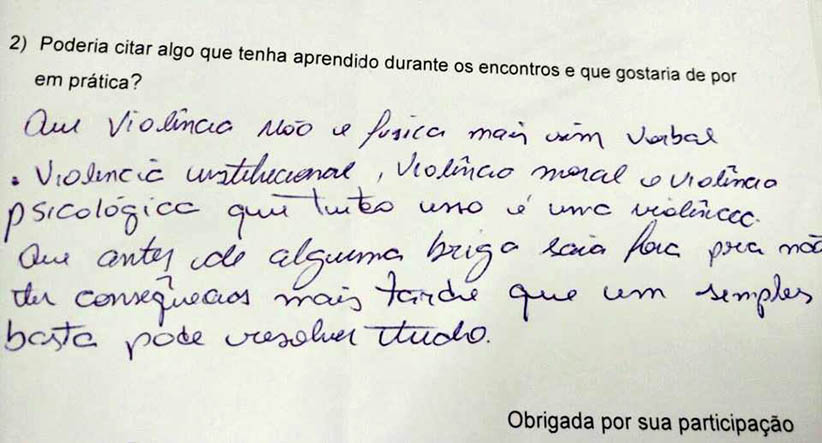 2) Poderia citar algo que tenha aprendido durante os encontros e que gostaria de por
em prática?
Que Violência não é fusica mais sim Verbal
. Violencia institucional, Violência moral e violência
psicológica que tudo isso é uma violência.
Que antes de alguma briga saia fora pra não
ter consequecias mais tarde que um simples
basta pode resolver tudo.
Obrigada por sua participação